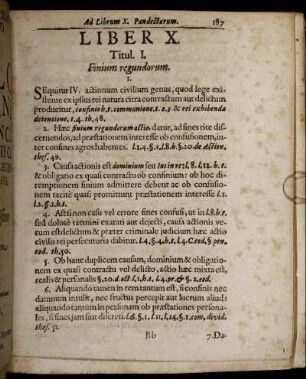 Ad Librum X. Pandectarum. 187
LIBER X.
Titul. I.
Finium regundorum.
1.
SEquitur IV. actionum civilium genus, quod lege exi-
stente ex ipsius rei natura citra contractum aut delictum
producitur, confinio h. t. communione. t. 2. 3. & rei exhibenda
detentione, t. 4. th. 48.
2. Hæc finium regundorum actio datur, ad fines rite dis-
cernendos, ad præstationem interesse ob confusionem, in-
ter confines agros habentes. l. 2. 4. §. 1. l. 8. h. §. 20. de Action.
thes. 49.
3. Causa actionis est dominium seu jus in re; l. 8. l. 12. h. t.
& obligatio ex quasi contractu ob confinium: ob hoc di-
remptionem finium admittere debent ac ob confusio-
nem tacitè quasi promittunt præstationem interesse l. 1.
l. 2. §. 2. h. t.
4. Ast si non casu vel errore fines confusi, ut in l. 8. h. t.
sed dolosè termini exarati aut dejecti, causa actionis ve-
rum est delictum & præter criminale judicium hæc actio
civilis rei persecutoria dabitur. l. 4. §. 4. h. t. l. 4. C. eod. § pen.
eod. th. 50.
5. Ob hanc duplicem causam, dominium & obligatio-
nem ex quasi contractu vel delicto, actio hæc mixta est,
realis & personalis §. 20. d. act. l. 1. h. t. l. 4. pr. & §. 2. eod.
6. Aliquando tamen in rem tantum est, si confinis nec
damnum intulit, nec fructus percepit aut lucrum aliud:
aliquando tantum in personam ob præstationes persona-
les, si fines jam sint discreti. l. 6. §. 1. l. 11. l. 14. §. 1. com. divid.
thes. 51.
Bb 7. Da-